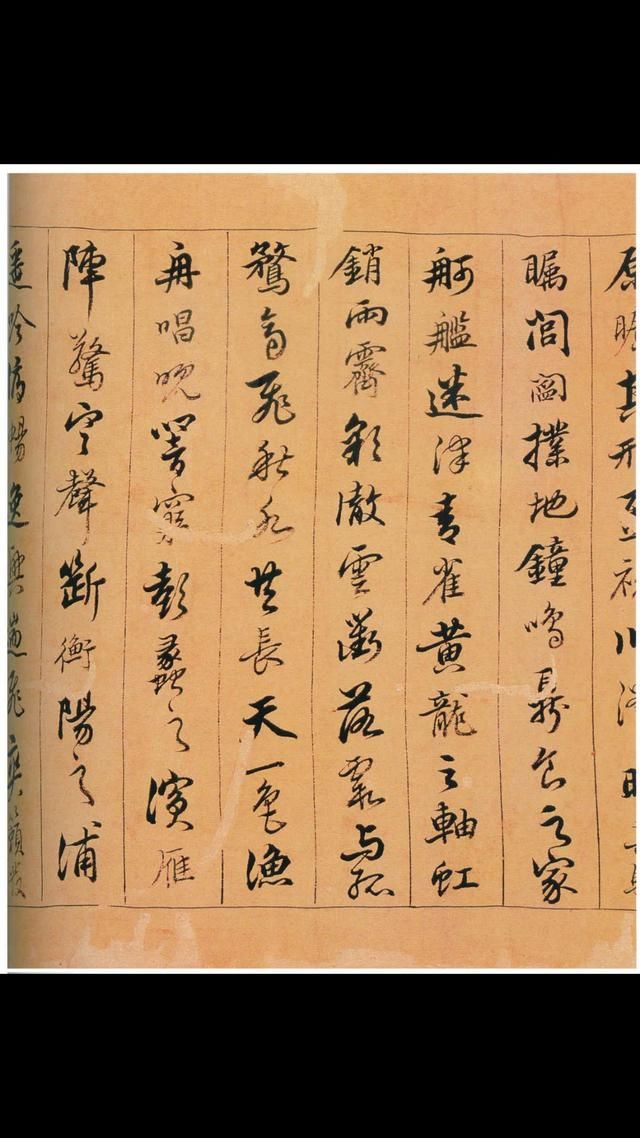 原其川澤
矚閭閻撲地鐘鳴鼎食之家
舸艦迷津青雀黃龍之軸虹
銷雨霽彩徹雲衢落霞與孤
鶩齊飛秋水共長天一色漁
舟唱晚響窮彭蠡之濱雁
陣驚寒聲斷衡陽之浦
遙吟俯暢逸興遄飛爽籟發